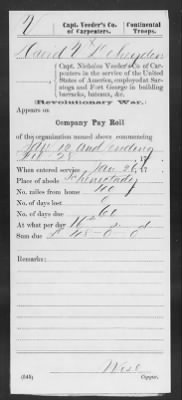 V | Capt. Veeder's Co. of Carpenters. | Continental Troops.
(Capt. Nicholas Veeder's Co. of Carpenters in the service of the United States of America, employed at Saratoga and Fort George in building barracks, bateaux, &c.
(Revolutionary War.)
Appears on
Company Pay Roll
of the organization named above commencing
Jan 12 and ending
Feb 28, 177
When entered service, Jan 26, 17
Place of abode, Schenectady
No. miles from home, 40
No. of days lost, 0
No. of days due, 60
At what per day, 16
Sum due, £ 48-0-0
Remarks:
(545)
Copyist.